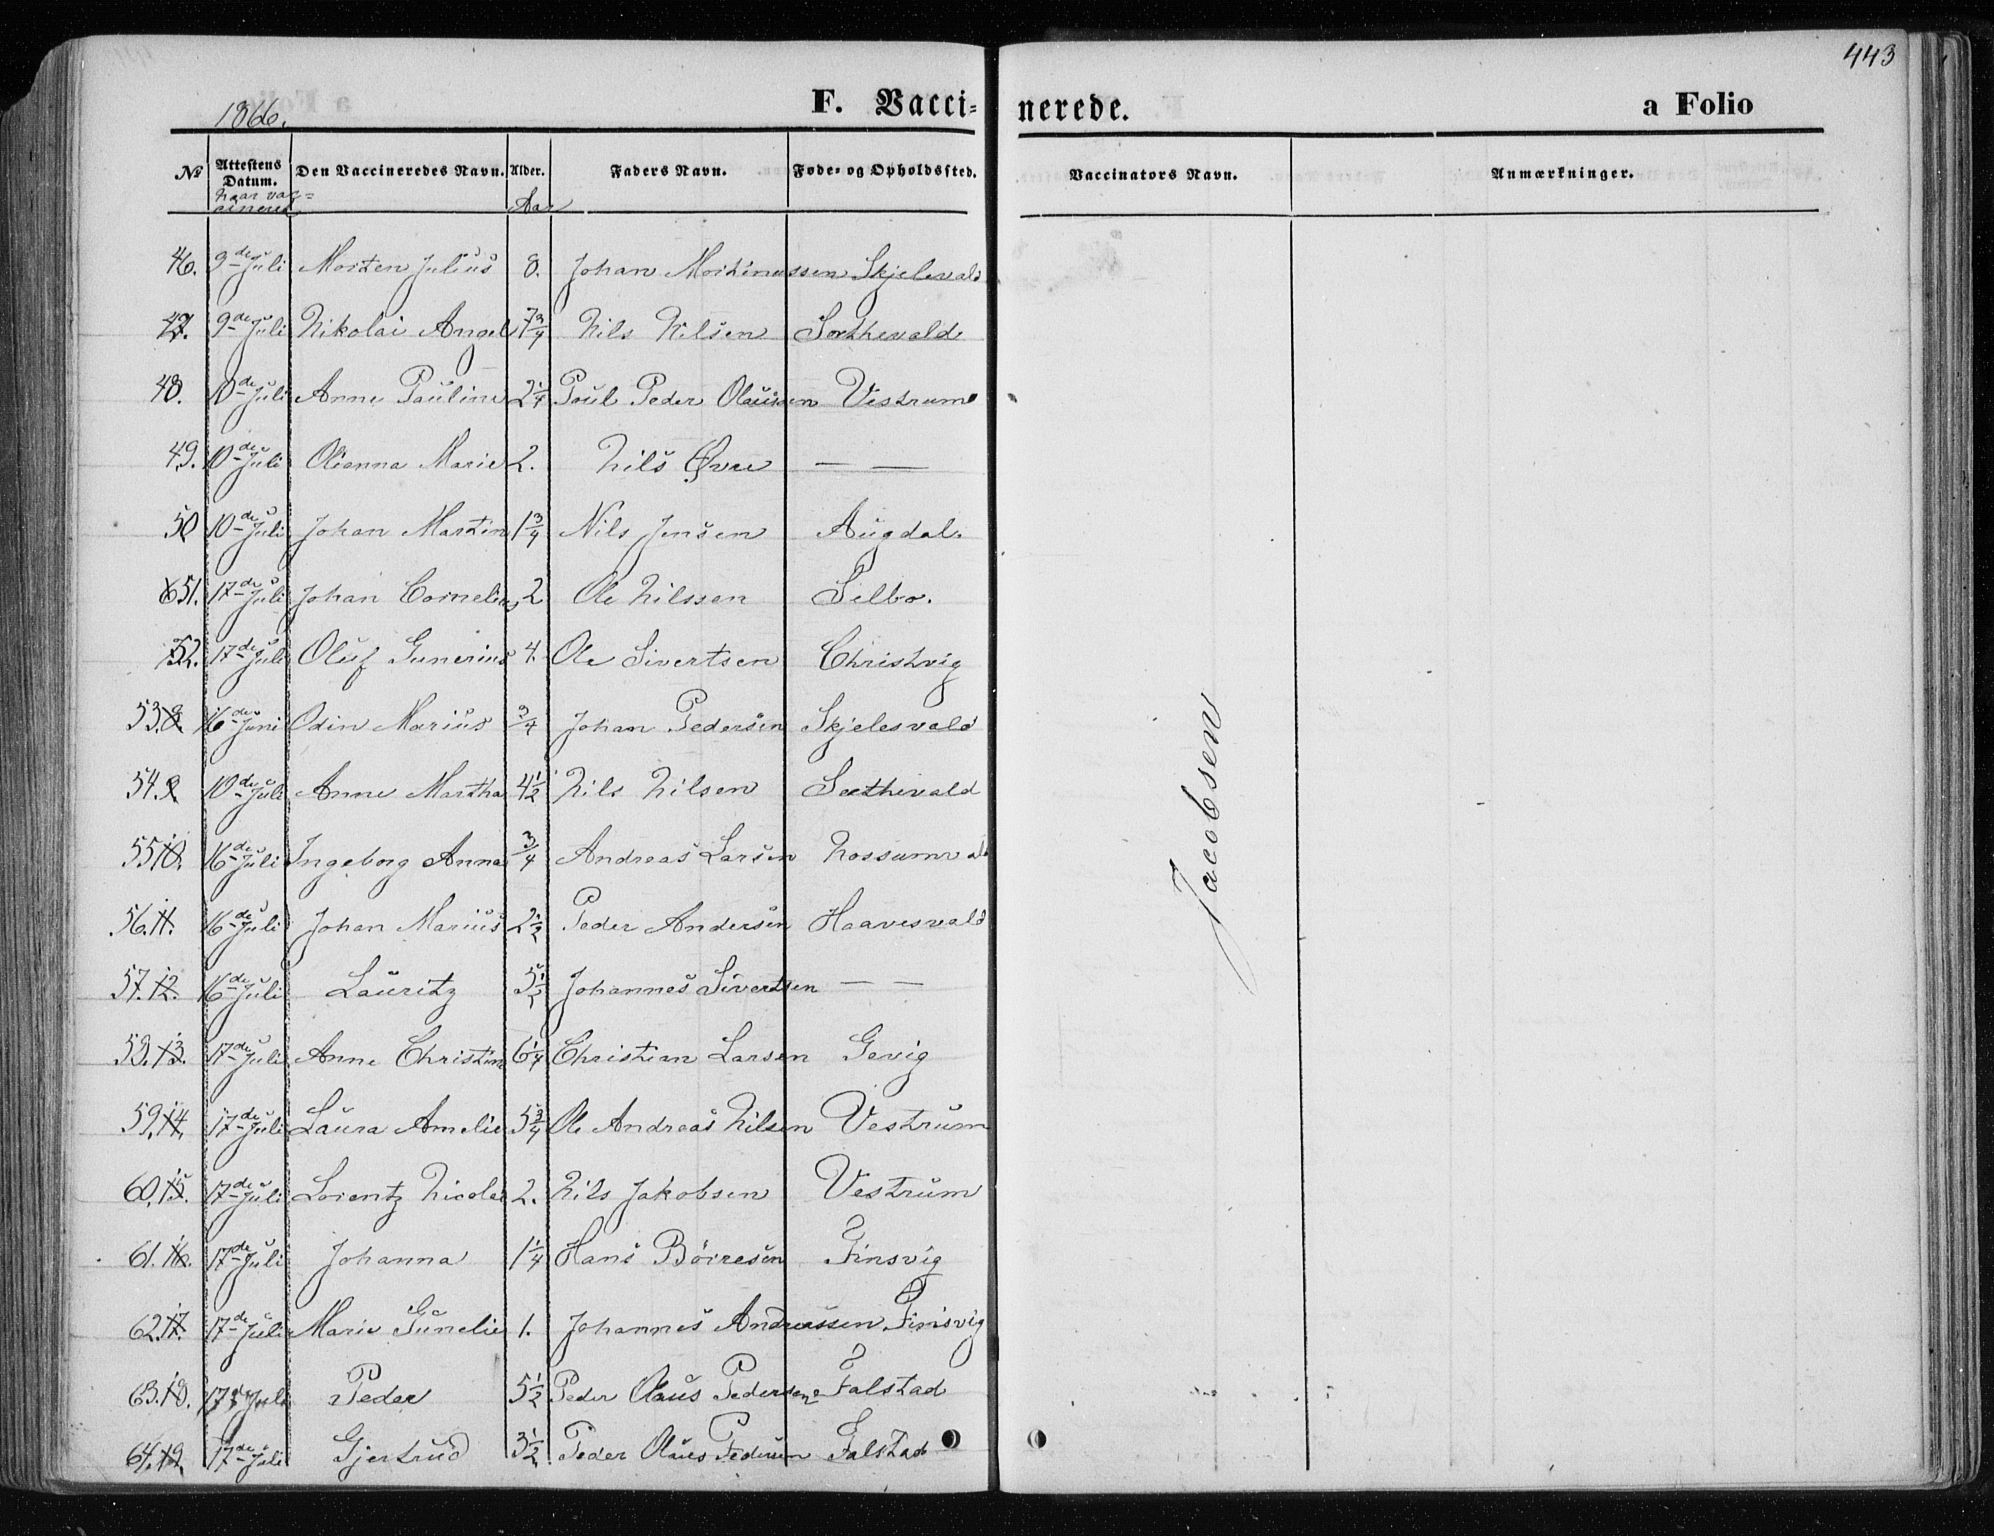 443
1866.
F. Vacci=nerede.
a Folio
No Attestens Datum. Den Vaccineredes Navn. Alder. Faders Navn. Føde- og Opholdssted. Vaccinators Navn. Anmærkninger.
naar vaccineret Aar
46. 9de Juli Morten Julius 8. Johan Mortinussen Skjelsvald
47. 9de Juli Nikolai Angel 7 3/4 Nils Nilsen Sorthevald
48. 10de Juli Anne Pauline 2 1/4 Paul Peder Olaussen Vestrum
49. 10de Juli Olianna Marie 2. Nils Øvre — —
50 10de Juli Johan Martin 1 3/4 Nils Jensen Augdal
51. 17de Juli Johan Cornelius 2 Ole Nilssen Selbo.
52. 17de Juli Oluf Gunerius 4. Ole Sivertsen Christvig
53. 16de Juni Odin Marius 3/4 Johan Pedersen Skjelesvald
54. 10de Juli Anne Martha 4 1/2 Nils Nilsen Sorthevald
55 10. 16de Juli Ingeborg Anna 3/4 Andreas Larsen Nossumvald
56. 11. 16de Juli Johan Marius 2 1/2 Peder Andersen Haavesvald
57. 12. 16de Juli Lauritz 5 1/2 Johannes Sivertsen — —
58. 13. 17de Juli Anne Christin 6 1/4 Christian Larsen Gevig
59. 14. 17de Juli Laura Amelie 5 3/4 Ole Andreas Nilsen Vestrum
60. 15. 17de Juli Lorentz Nicolai 2. Nils Jakobsen Vestrum
61. 16. 17de Juli Johanna 1 1/4 Hans Börresen Finsvig
62. 17. 17de Juli Marie Gunelie 1. Johannes Andreassen Finsvig
63. 18. 17de Juli Peder 5 1/2 Peder Olaus Pedersen Falstad
64. 19. 17de Juli Gjertrud 3 1/2 Peder Olaus Pedersen Falstad
Jacobsen